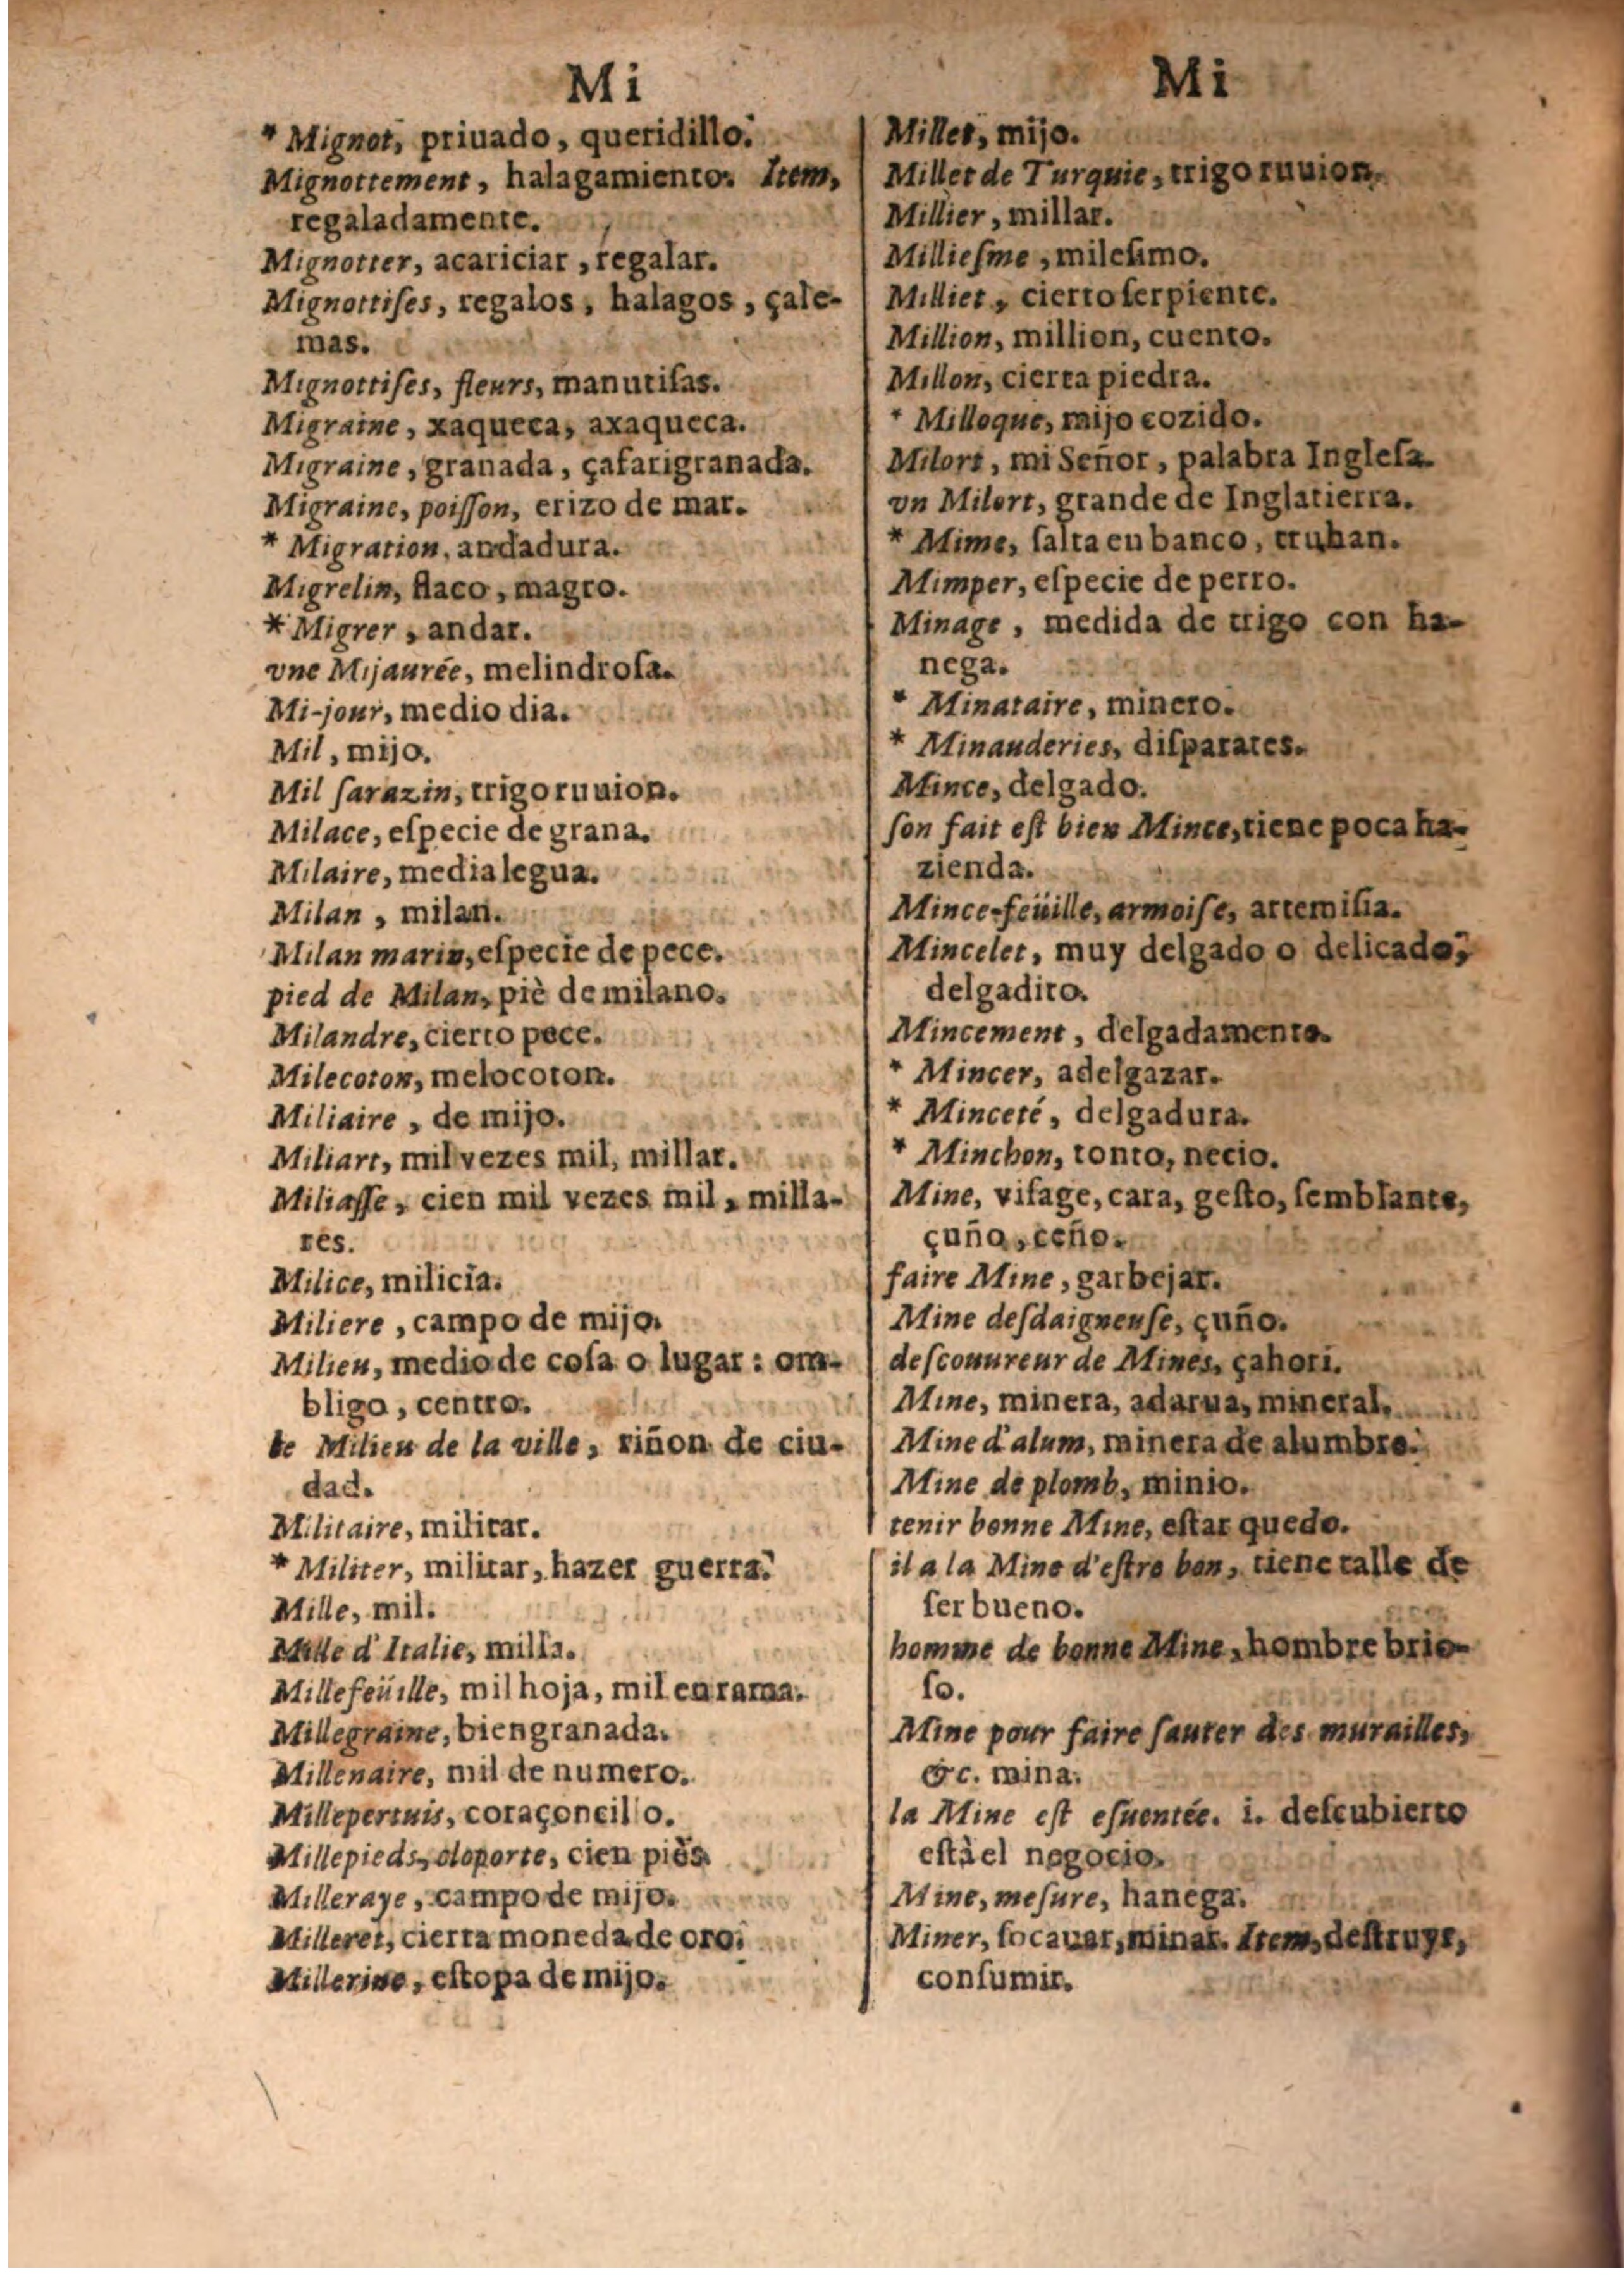 Mi
* Mignot, priuado, queridillo.
Mignottement, halagamiento. Item,
regaladamente.
Mignotter, acariciar, regalar.
Mignottiſes, regalos, halagos, çale-
mas.
Mignottiſes, fleurs, manutiſas.
Migraine, xaqueca, axaqueca.
Migraine, granada, çafarigranada.
Migraine, poiſſon, erizo de mar.
* Migration, andadura.
Migrelin, flaco, magro.
* Migrer, andar.
vne Mijaurée, melindroſa.
Mi-jour, medio dia.
Mil, mijo.
Mil ſarazin, trigo ruuion.
Milace, eſpecie de grana.
Milaire, media legua.
Milan, milan.
Milan marin, eſpecie de pece.
pied de Milan, piè de milano.
Milandre, cierto pece.
Milecoton, melocoton.
Miliaire, de mijo.
Miliart, mil vezes mil, millar.
Miliaſſe, cien mil vezes mil, milla-
res.
Milice, milicia.
Miliere, campo de mijo.
Milieu, medio de coſa o lugar: om-
bligo, centro.
le Milieu de la ville, riñon de ciu-
dad.
Militaire, militar.
* Militer, militar, hazer guerra.
Mille, mil.
Mille d'Italie, milla.
Millefeüille, mil hoja, mil en rama.
Millegraine, biengranada.
Millenaire, mil de numero.
Millepertuis, coraçoncillo.
Millepieds, cloporte, cien piès.
Milleraye, campo de mijo.
Milleret, cierta moneda de oro.
Millerine, eſtopa de mijo.
Mi
Millet, mijo.
Millet de Turquie, trigo ruuion.
Millier, millar.
Millieſme, mileſimo.
Milliet, cierto ſerpiente.
Million, million, cuento.
Millon, cierta piedra.
* Milloque, mijo cozido.
Milort, mi Señor, palabra Ingleſa.
vn Milort, grande de Inglatierra.
* Mime, ſalta eu banco, truhan.
Mimper, eſpecie de perro.
Minage, medida de trigo con ha-
nega.
* Minataire, minero.
* Minauderies, diſparates.
Mince, delgado.
ſon fait eſt bien Mince, tiene poca ha-
zienda.
Mince-feüille, armoiſe, artemiſia.
Mincelet, muy delgado o delicado,
delgadito.
Mincement, delgadamente.
* Mincer, adelgazar.
* Minceté, delgadura.
* Minchon, tonto, necio.
Mine, viſage, cara, geſto, ſemblante,
çuño, ceño.
faire Mine, garbejar.
Mine deſdaigneuſe, çuño.
deſcouureur de Mines, çahori.
Mine, minera, adarua, mineral.
Mine d'alum, minera de alumbre.
Mine de plomb, minio.
tenir bonne Mine, eſtar quedo.
il a la Mine d'eſtre bon, tiene talle de
ſer bueno.
homme de bonne Mine, hombre brio-
ſo.
Mine pour faire ſauter des murailles,
&c. mina.
la Mine eſt eſuentée. i. deſcubierto
eſtà el negocio.
Mine, meſure, hanega.
Miner, ſocauar, minar. Item, deſtruyr,
conſumir.